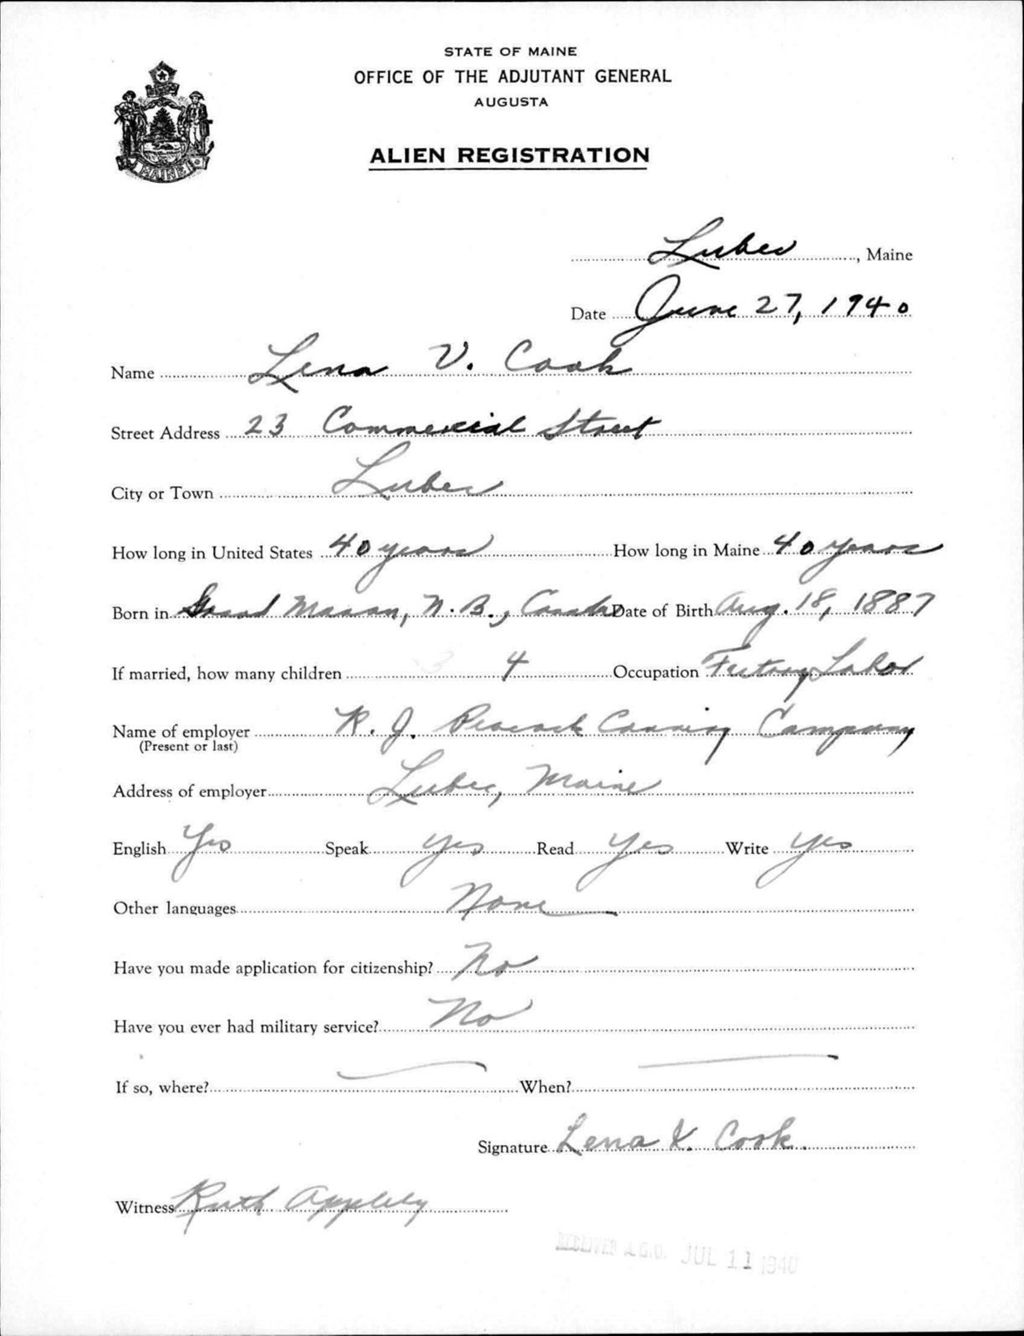 STATE OF MAINE
OFFICE OF THE ADJUTANT GENERAL
AUGUSTA
ALIEN REGISTRATION
MAINE
Lubec, Maine
Date June 27, 1940
Name Lena V. Cook
Street Address 23 Commercial Street
City or Town Lubec
How long in United States 40 years How long in Maine 40 years
Born in Grand Manan, N.B., Canada Date of Birth Aug. 18, 1887
If married, how many children 4 Occupation Factory Labor
Name of employer R. J. Peacock Canning Company
(Present or last)
Address of employer Lubec, Maine
English Yes Speak Yes Read Yes Write Yes
Other languages None
Have you made application for citizenship? No
Have you ever had military service? No
If so, where? When?
Signature Lena V. Cook.
Witness Ruth Appleby
RECEIVED A.G.O. JUL 11 1940